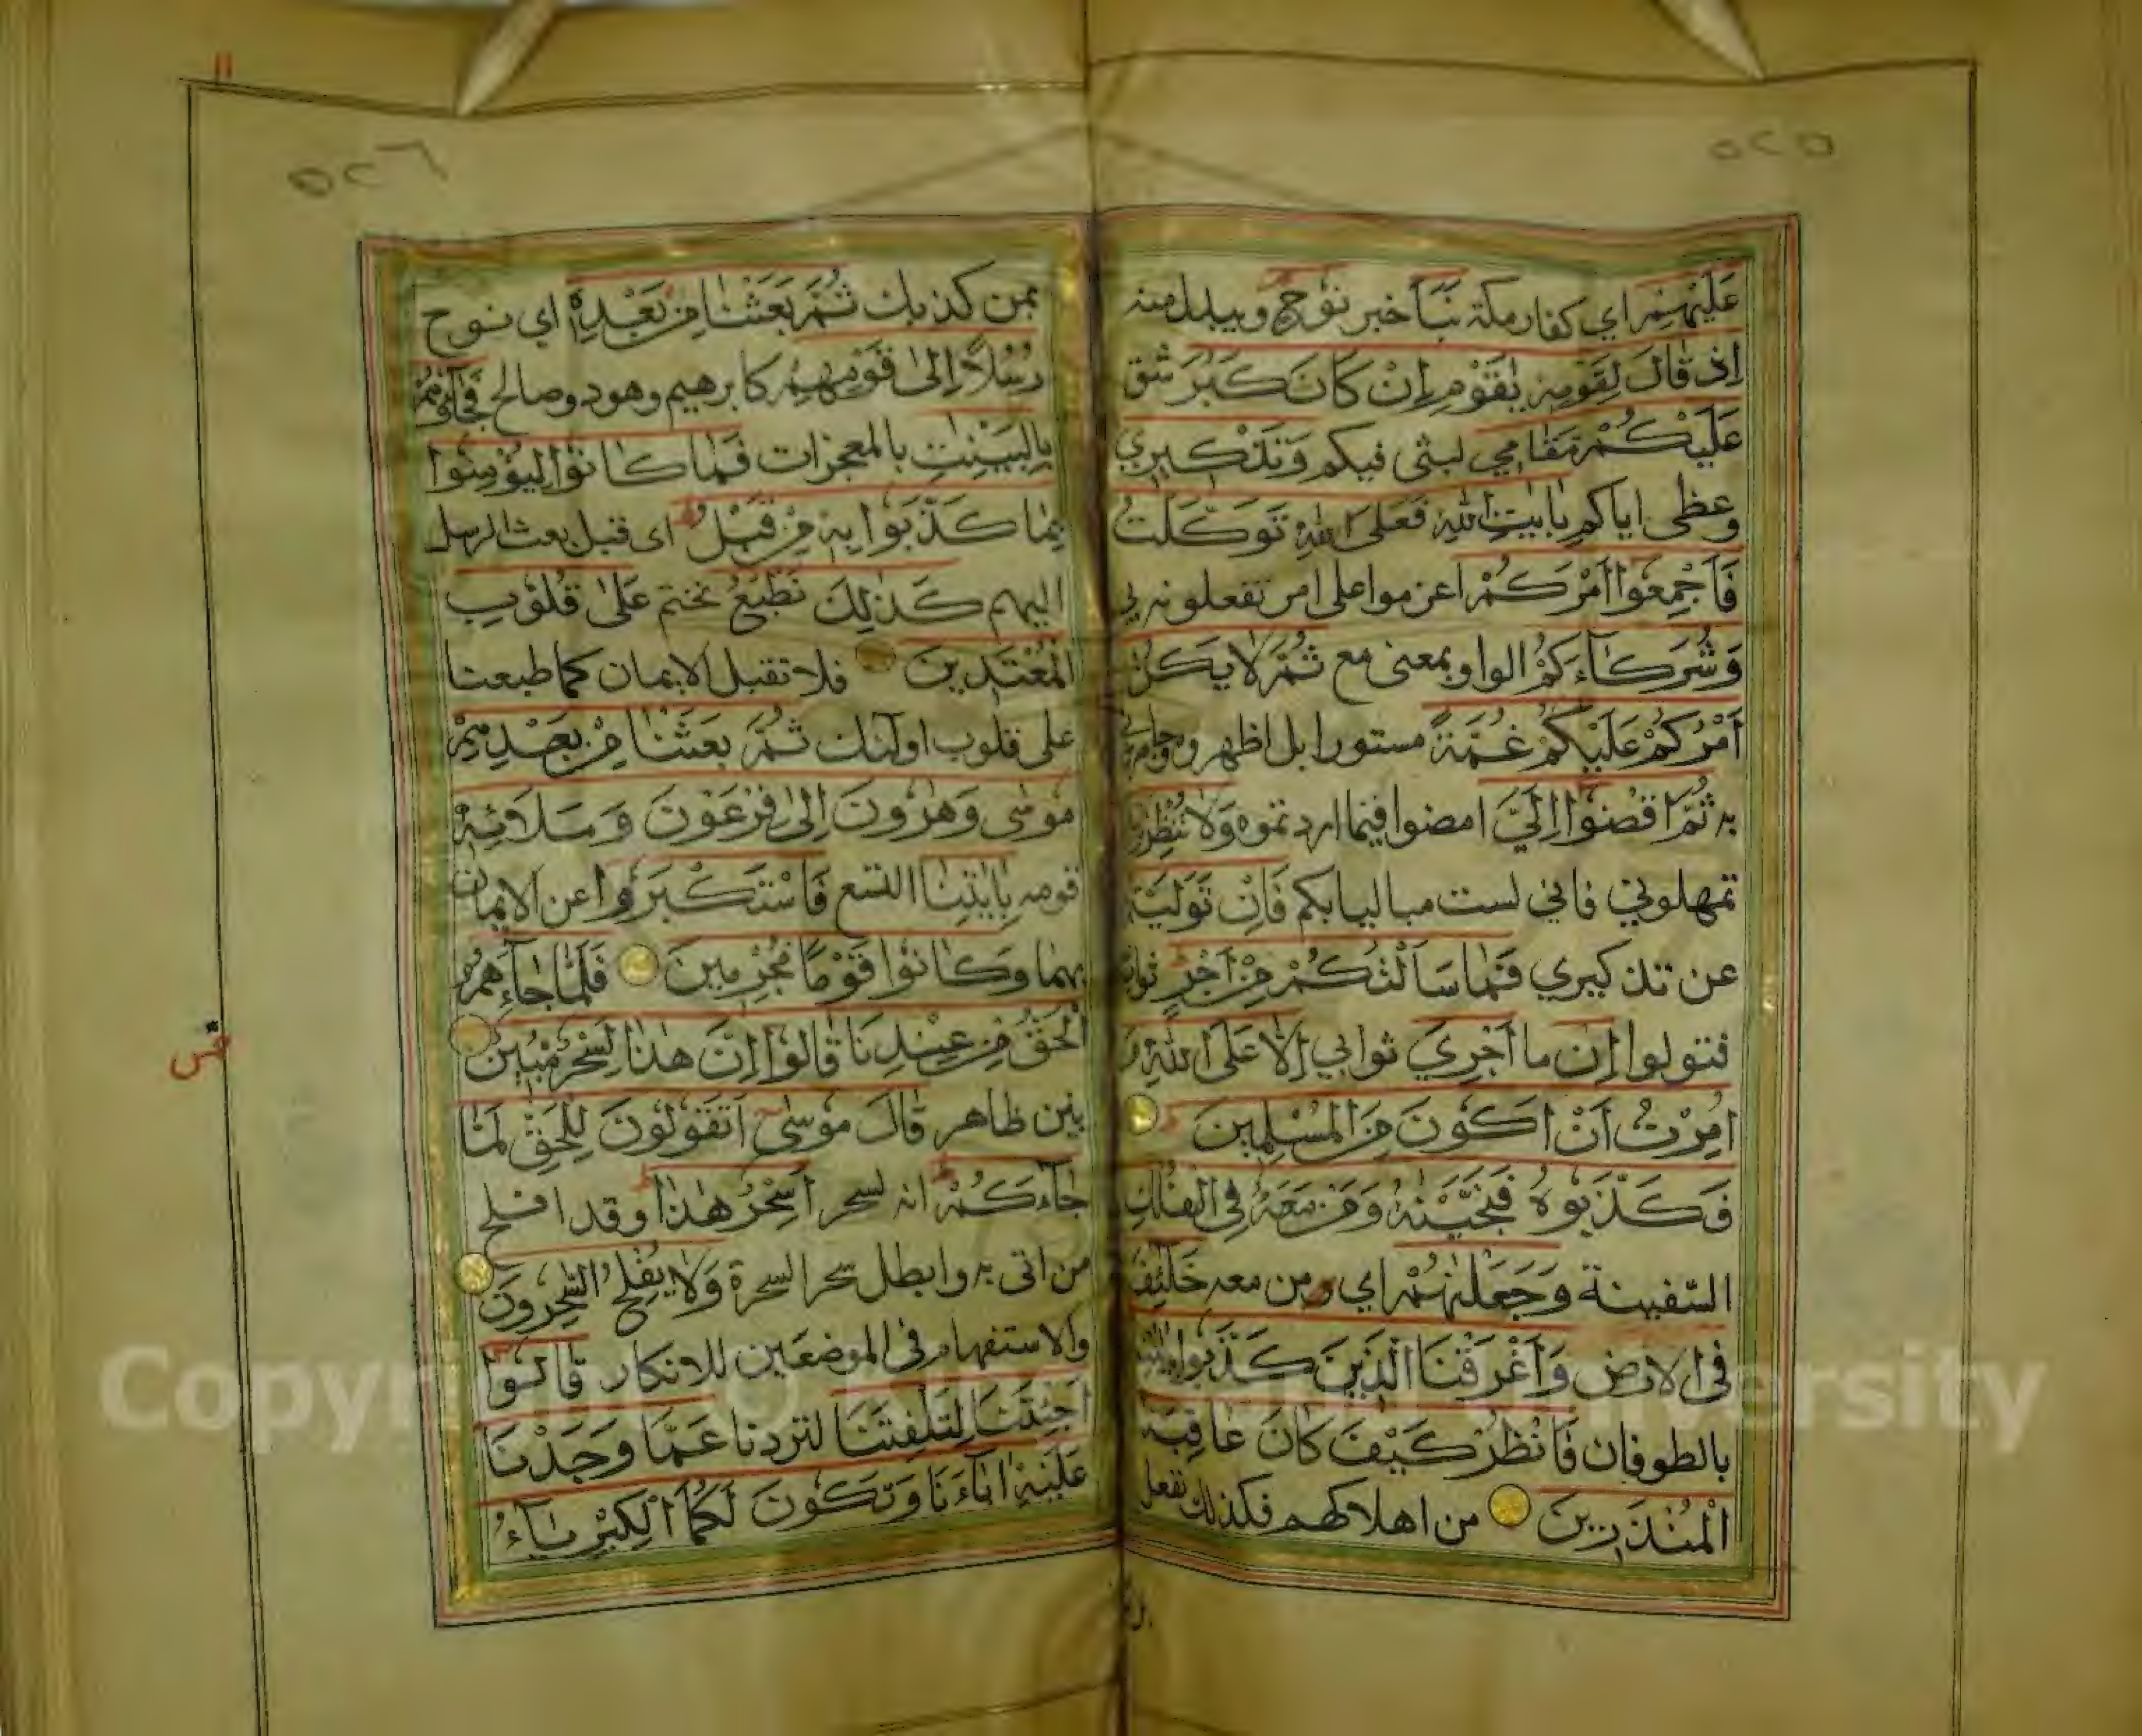 ٥٢٥
عَلَيْهِمْ اي كفار مكة نَبَأَ خبر نُوْحٍ ويبدل منه
اِذْ قَالَ لِقَوْمِهٖ يٰقَوْمِ اِنْ كَانَ كَبُرَ شق
عَلَيْكُمْ مَّقَامِي لبثى فيكم وَتَذْكِيرِي
وعظى اياكم بِاٰيٰتِ اللّٰهِ فَعَلَى اللّٰهِ تَوَكَّلْتُ
فَاَجْمِعُوْا اَمْرَكُمْ اعزموا على امر تفعلونه بي
وَشُرَكَآءَكُمْ الواو بمعنى مع ثُمَّ لَا يَكُنْ
اَمْرُكُمْ عَلَيْكُمْ غُمَّةً مستورا بل اظهروه وجاهروني
به ثُمَّ اقْضُوْا اِلَيَّ امضوا فيما اردتموه وَلَا تُنْظِرُوْنِ
تمهلوني فاني لست مباليا بكم فَاِنْ تَوَلَّيْتُمْ
عن تذكيري فَمَا سَاَلْتُكُمْ مِّنْ اَجْرٍ ثواب
فتتولوا اِنْ ما اَجْرِيَ ثوابي اِلَّا عَلَى اللّٰهِ وَ
اُمِرْتُ اَنْ اَكُوْنَ مِنَ الْمُسْلِمِيْنَ
فَكَذَّبُوْهُ فَنَجَّيْنٰهُ وَمَنْ مَّعَهٗ فِي الْفُلْكِ
السّفينة وَجَعَلْنٰهُمْ اي من معه خَلٰٓئِفَ
فِى الْاَرْضِ وَاَغْرَقْنَا الَّذِيْنَ كَذَّبُوْا بِاٰيٰتِنَا
بالطوفان فَانْظُرْ كَيْفَ كَانَ عَاقِبَةُ
الْمُنْذَرِيْنَ من اهلاكهم فكذلك نفعل
٥٢٦
بمن كذبك ثُمَّ بَعَثْنَا مِنْ بَعْدِهٖ اي نوح
رُسُلًا اِلٰى قَوْمِهِمْ كابرهيم وهود وصالح فَجَآءُوْهُمْ
بِالْبَيِّنٰتِ بالمعجزات فَمَا كَانُوْا لِيُؤْمِنُوْا
بِمَا كَذَّبُوْا بِهٖ مِنْ قَبْلُ اى قبل بعث الرسل
اليهم كَذٰلِكَ نَطْبَعُ نختم عَلٰى قُلُوْبِ
الْمُعْتَدِيْنَ فلا تقبل الايمان كما طبعنا
على قلوب اولئك ثُمَّ بَعَثْنَا مِنْ بَعْدِهِمْ
مُوْسٰى وَهٰرُوْنَ اِلٰى فِرْعَوْنَ وَمَلَائِهٖ
قومه بِاٰيٰتِنَا التسع فَاسْتَكْبَرُوْا عن الايمان
بهما وَكَانُوْا قَوْمًا مُّجْرِمِيْنَ فَلَمَّا جَآءَهُمُ
الْحَقُّ مِنْ عِنْدِنَا قَالُوْا اِنَّ هٰذَا لَسِحْرٌ مُّبِيْنٌ
بين ظاهر قَالَ مُوْسٰٓى اَتَقُوْلُوْنَ لِلْحَقِّ لَمَّا
جَآءَكُمْ انه لسحر اَسِحْرٌ هٰذَا وقد افلح
من اتى به وابطل سحر السحرة وَلَا يُفْلِحُ السّٰحِرُوْنَ
والاستفهام فى الموضعين للانكار قَالُوْٓا
اَجِئْتَنَا لِتَلْفِتَنَا لتردنا عَمَّا وَجَدْنَا
عَلَيْهِ اٰبَآءَنَا وَتَكُوْنَ لَكُمَا الْكِبْرِيَآءُ